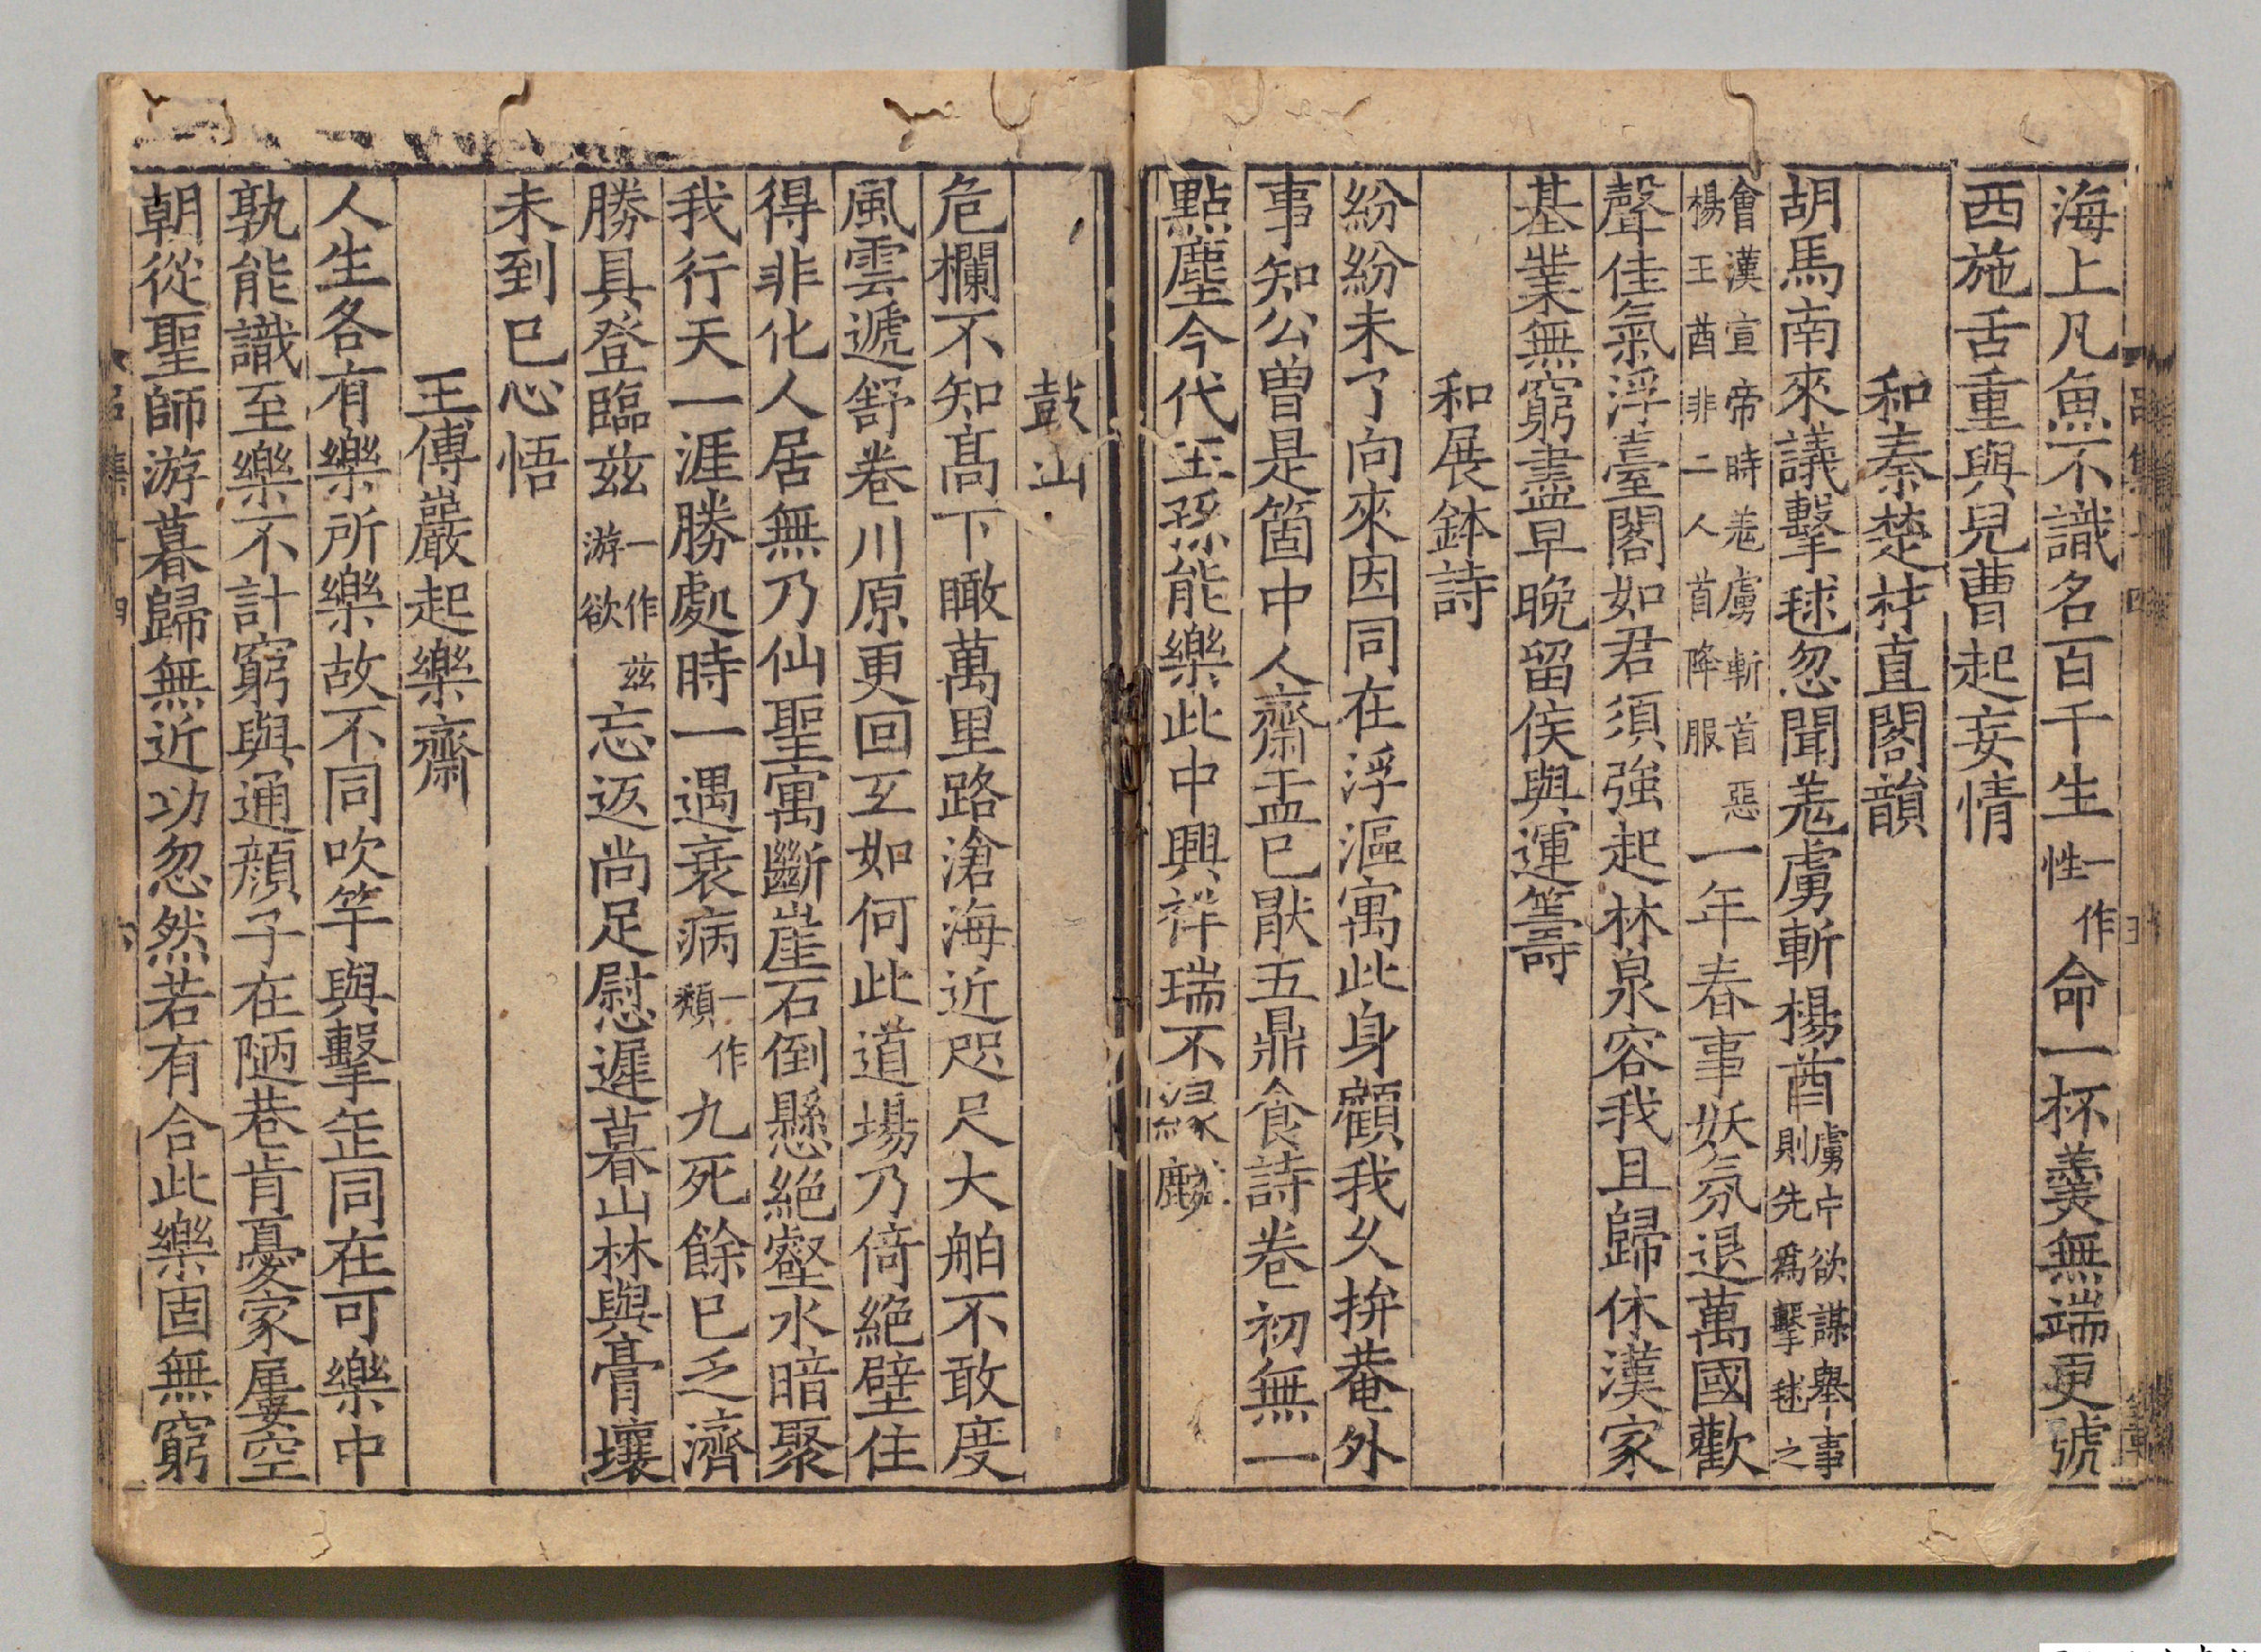 海上凡魚不識名百千生一作性命一杯羹無端更號
西施舌重與兒曹起妄情
和秦楚材直閣韻
胡馬南來議擊毬忽聞羗虜斬楊酋虜中欲謀舉事則先爲擊毬之
會漢宣帝時羗虜斬首惡楊王酋非二人首降服一年春事妖氛退萬國歡
聲佳氣浮臺閣如君須強起林泉容我且歸休漢家
基業無窮盡早晩留侯與運籌
和展鉢詩
紛紛未了向來因同在浮漚寓此身顧我乆拚菴外
事知公曽是箇中人齋盂已猒五鼎食詩卷初無一
點塵今代王孫能樂此中興祥瑞不縁麟
鼓山
危欄不知髙下瞰萬里路滄海近咫尺大舶不敢度
風雲遞舒卷川原更回互如何此道場乃倚絶壁住
得非化人居無乃仙聖寓斷崖石倒懸絶壑水暗聚
我行天一涯勝處時一遇衰病一作頹九死餘已乏濟
勝具登臨兹一作兹游欲忘返尚足慰遲暮山林與膏壤
未到已心悟
王傅巖起樂齋
人生各有樂所樂故不同吹竽與擊缶同在可樂中
孰能識至樂不計窮與通顔子在陋巷肯憂家屢空
朝從聖師游暮歸無近功忽然若有合此樂固無窮